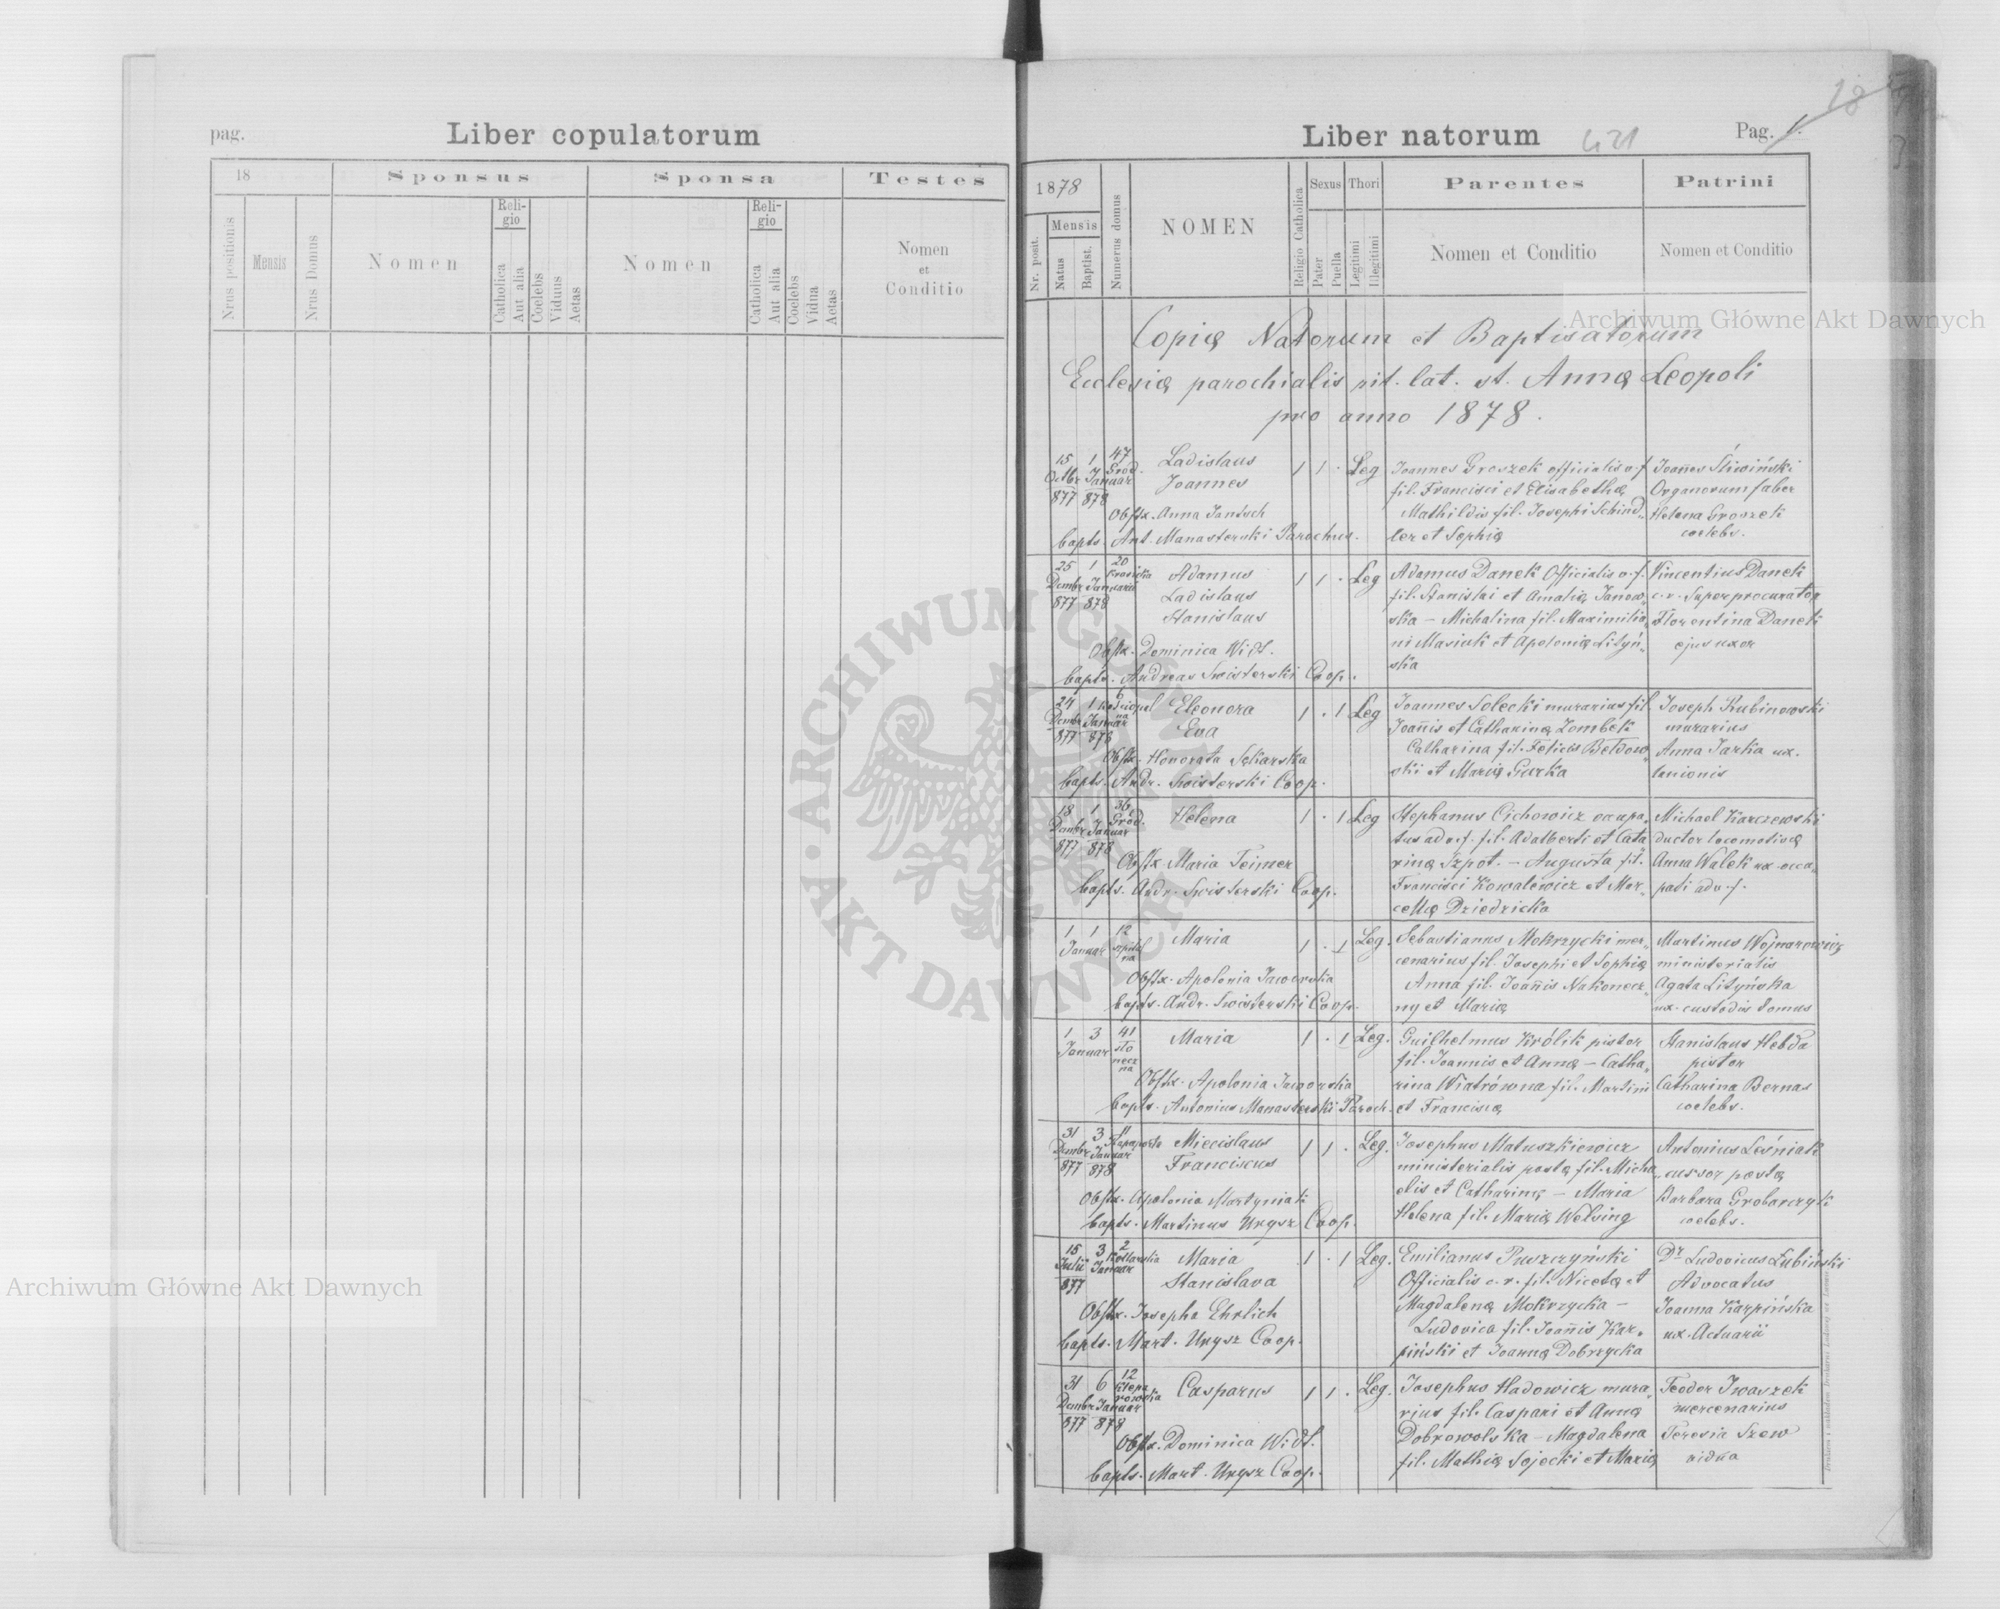 pag.
Liber copulatorum
18
Sponsus
Sponsa
Testes
Nrus positionis
Mensis
Nrus Domus
Nomen
Religio
Catholica
Aut alia
Coelebs
Viduus
Aetas
Nomen
Religio
Catholica
Aut alia
Coelebs
Vidua
Aetas
Nomen
et
Conditio
Liber natorum
421
Pag. 1.
18
1878
Nr. posit.
Mensis
Natus
Baptist.
Numerus domus
NOMEN
Religio Catholica
Sexus
Puer
Puella
Thori
Legitimi
Illegitimi
Parentes
Nomen et Conditio
Patrini
Nomen et Conditio
Copię Natorum et Baptisatorum
Ecclesię parochialis rit. lat. st. Annę Leopoli
pro anno 1878.
15 Octbr 877
1 Januar 878
47 Gród.
Ladislaus
Joannes
1 1 . Leg
Obstx. Anna Jantsch
bapts. Ant. Manasterski Parochus.
Joannes Groszek officialis a.f
fil. Francisci et Elisabethę
Mathildis fil. Josephi Schind„
ler et Sophię
Joañes Śliwiński
Organorum faber
Helena Groszek
coelebs.
25 Dcmbr 877
1 Januarii 878
20
Adamus
Ladislaus
Stanislaus
1 1 . Leg
Obstx. Dominica Widt.
bapts. Andreas Swisterski Coop.
Adamus Danek Officialis a.f.
fil. Stanislai et Amalię Janow„
ska – Michalina fil. Maximilia„
ni Masiuk et Apolonię Lityń„
ska
Vincentius Danek
c.r. Superprocurator
Florentina Danek
ejus uxor
24 Dcmbr 877
1 Januar 878
6
Eleonora
Eva
1 . 1 Leg
Obstx. Honorata Sękarska
bapts. Andr. Swisterski Coop.
Joannes Solecki murarius fil.
Joañis et Catharinę Zombek
Catharina fil. Felicis Bełdow„
ski et Marię Gurka
Joseph Rubinowski
murarius
Anna Jarka ux.
lanionis
18 Dcmbr 877
1 Januar 878
36 Gród.
Helena
1 . 1 Leg
Obstx Maria Teimer
bapts. Andr. Swisterski Coop.
Stephanus Cichowicz occupa„
tus ad v.f. fil. Adalberti et Cata
rinę Szpot. – Augusta fil.
Francisci Kowalewicz et Mar„
cellę Dziedzicka
Michael Karczewski
ductor locomotivę
Anna Walek ux. occu„
pati adv.f.
1 1
Januar
12 szpital na
Maria
1 . 1 Leg.
Obstx. Apolonia Jaworska
bapts. Andr. Swisterski Coop.
Sebastianus Mokrzycki mer„
cenarius fil. Josephi et Sophię
Anna fil. Joañis Nakonecz„
ny et Marię
Martinus Wojnarowicz
ministerialis
Agata Lityńska
ux. custodis domus
1 3
Januar
41 sło necz na
Maria
1 . 1 Leg.
Obstx. Apolonia Jaworska
bapts. Antonius Manasterski Paroch.
Guilhelmus Królik pistor
fil. Joannis et Annę – Catha„
rina Wiatrówna fil. Martini
et Francisię
Stanislaus Hebda
pistor
Catharina Bernas
coelebs.
31 Dcmbr 877
3 Januar 878
11 Rapaporta
Miecislaus
Franciscus
1 1 . Leg.
Obstx. Apolonia Martyniak
bapts. Martinus Urysz Coop.
Josephus Matuszkiewicz
ministerialis postę fil. Micha
elis et Catharinę – Maria
Helena fil. Marię Welsing
Antonius Leśniak
cursor postę
Barbara Grobarczyk
coelebs.
15 Julii 877
3 Januar
2 Kotlarska
Maria
Stanislava
1 . 1 Leg.
Obstx. Josepha Ehrlich
bapts. Mart. Urysz Coop.
Emilianus Puszczyński
Officialis c.r. fil. Nicetę et
Magdalenę Mokrzycka –
Ludovica fil. Joañis Kar„
piński et Joannę Dobrzycka
Dr Ludovicus Łubiński
Advocatus
Joanna Karpińska
ux. Actuarii
31 Dcmbr 877
6 Januar 878
12 Klepa rowska
Casparus
1 1 . Leg.
Obstx. Dominica Widt.
bapts. Mart. Urysz Coop.
Josephus Hadowicz mura„
rius fil. Caspari et Annę
Dobrowolska – Magdalena
fil. Mathię Sojecki et Marię
Teodor Iwaszek
mercenarius
Teresia Szew
vidua
Archiwum Główne Akt Dawnych
Archiwum Główne Akt Dawnych
ARCHIWUM GŁÓWNE AKT DAWNYCH